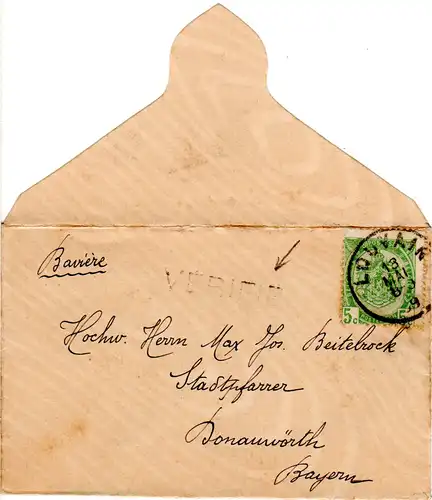 Bavière
VÉRIFIÉ
LOUVAIN
5c
Hochw. Herrn Max Jos. Beitelrock
Stadtpfarrer
Donauwörth
Bayern